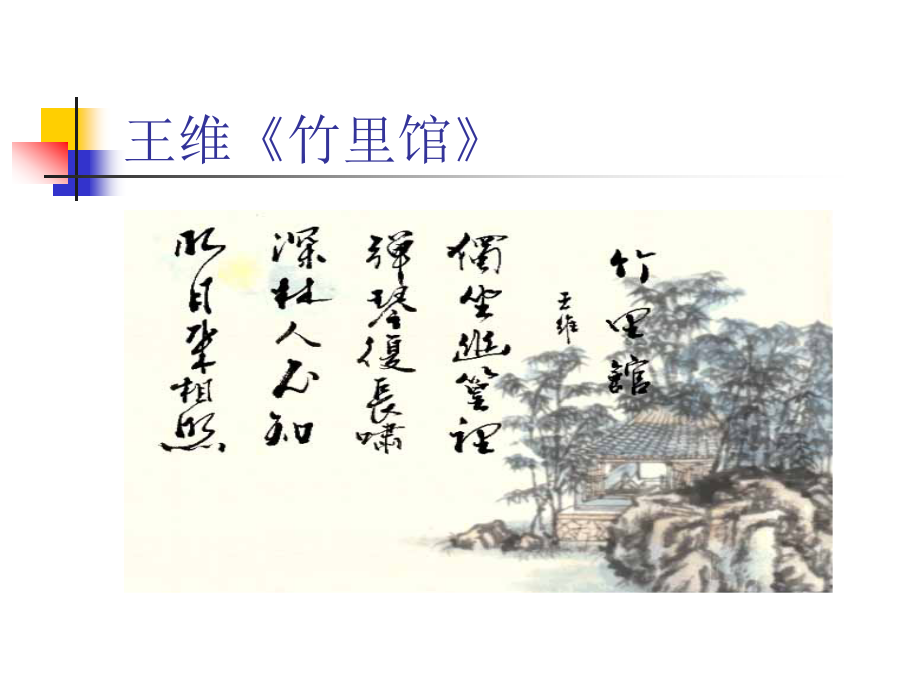 王维《竹里馆》
竹里館
王維
獨坐幽篁裡
彈琴復長嘯
深林人不知
明月來相照